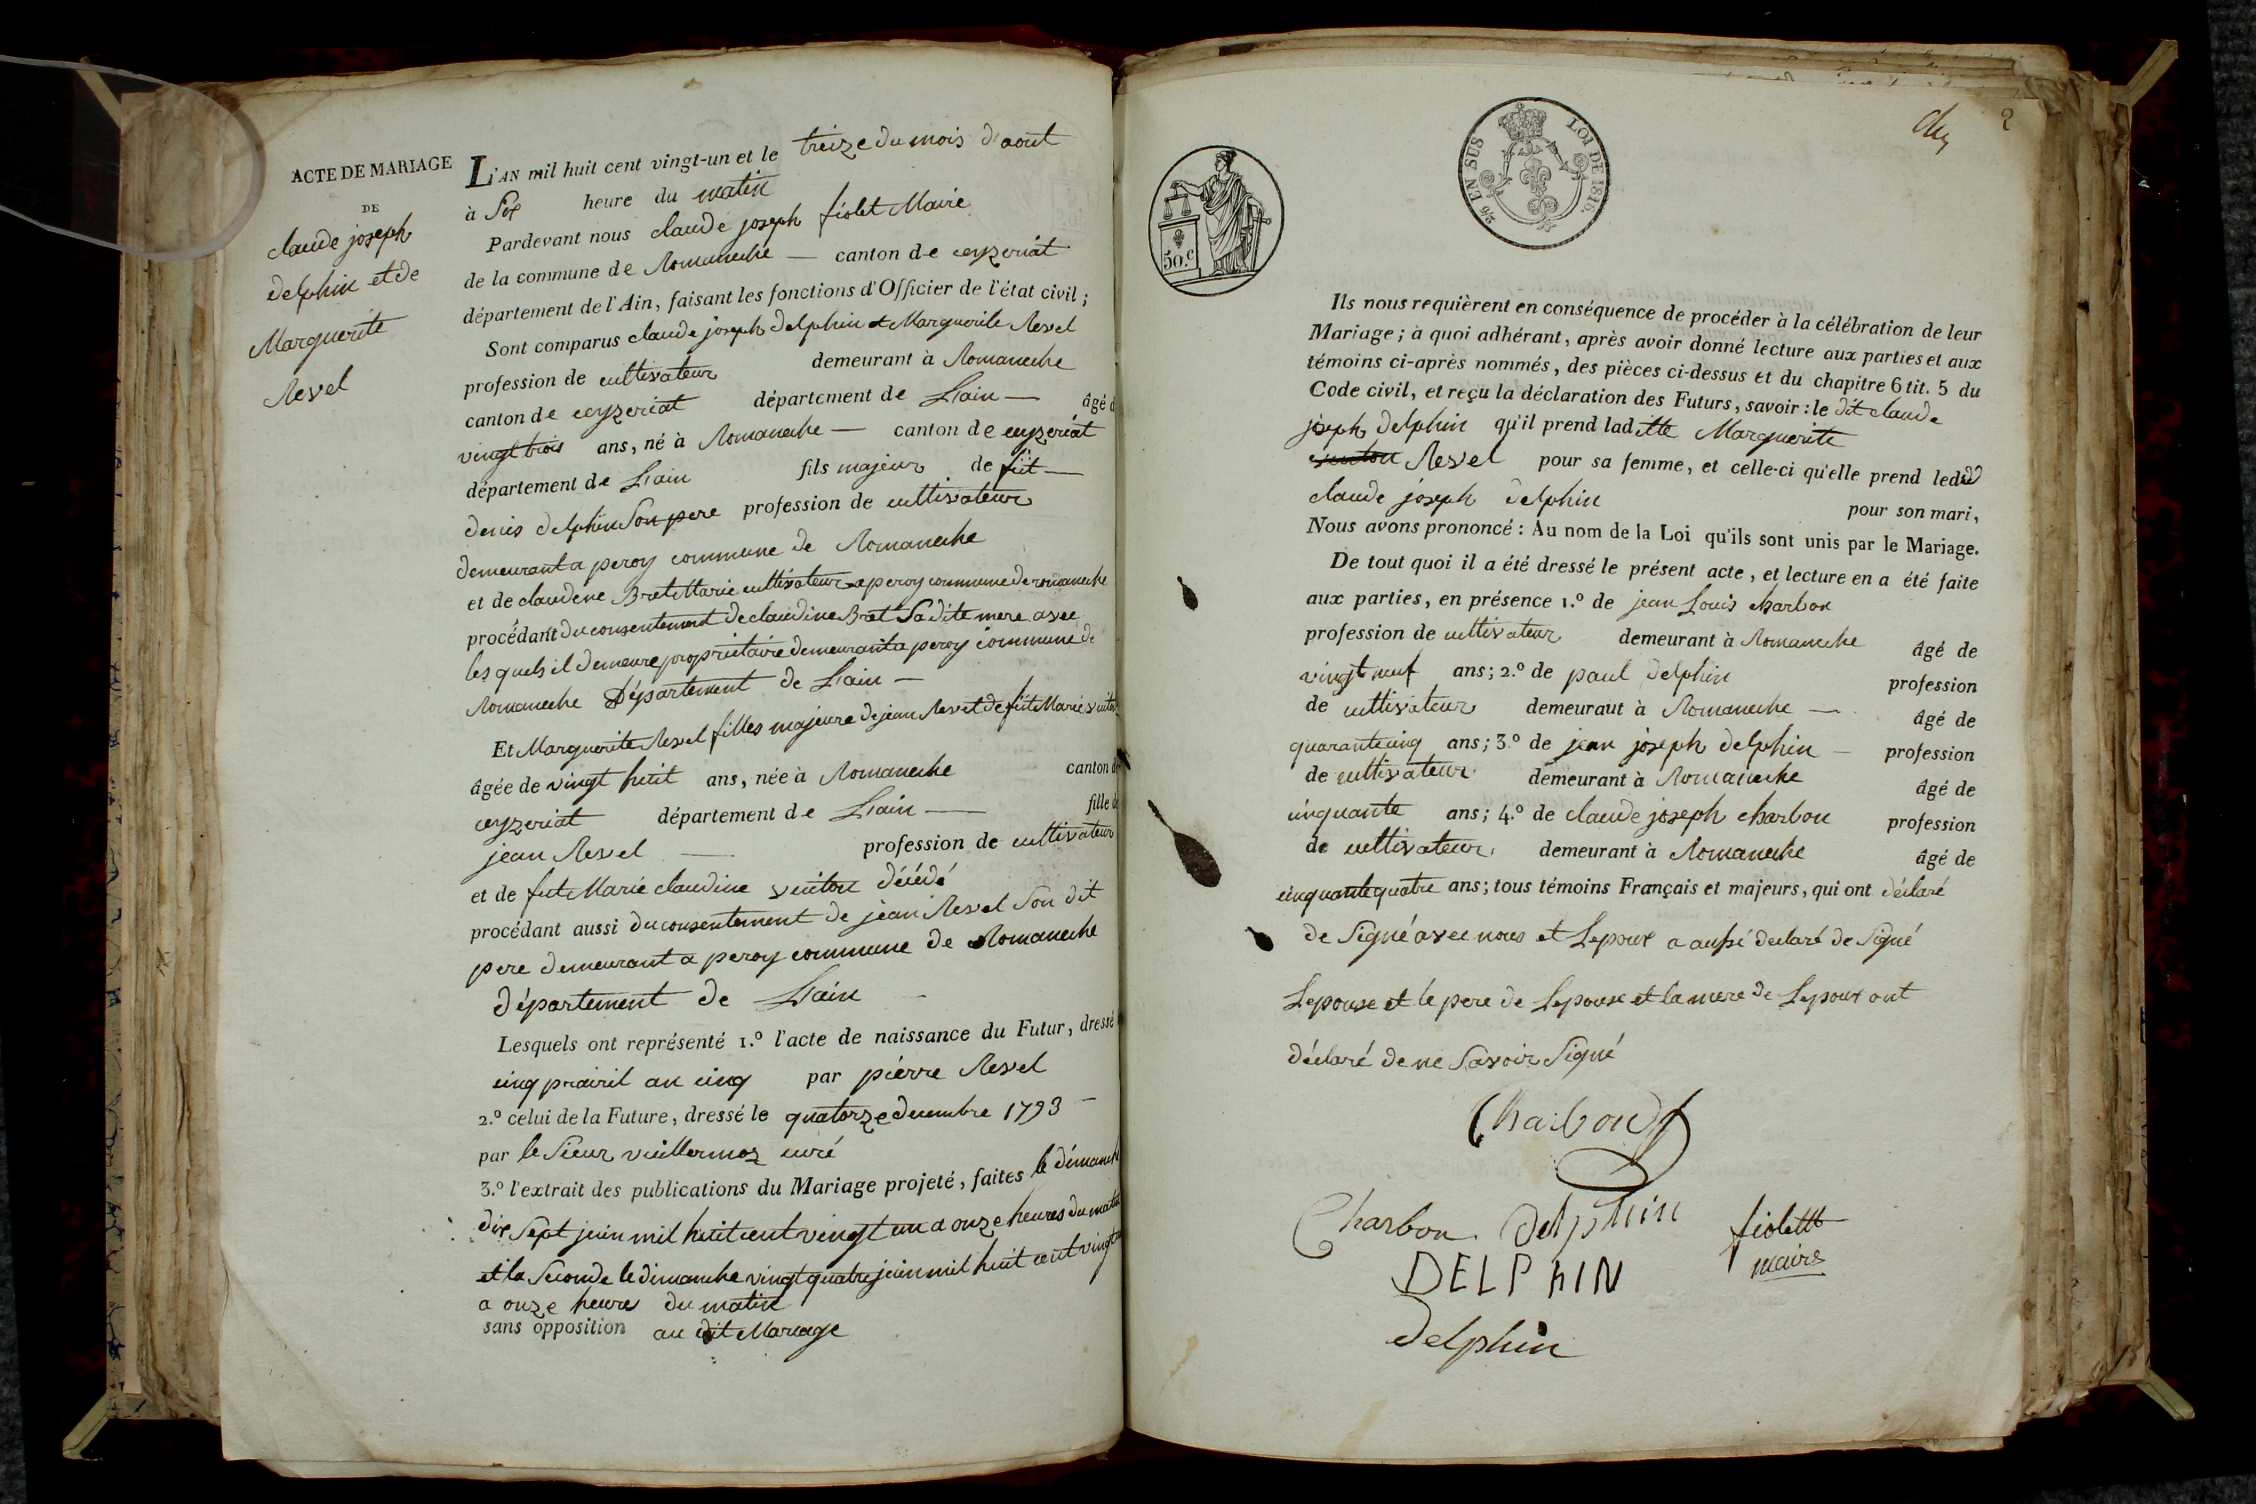 ACTE DE MARIAGE
DE
claude joseph
delphin et de
Marguerite
Revel
L'AN mil huit cent vingt-un et le treize du mois d'aout
à Six heure du matin
Pardevant nous claude joseph fiolet Maire
de la commune de Romaneche — canton de ceyzeriat
département de l'Ain, faisant les fonctions d'Officier de l'état civil;
Sont comparus claude joseph delphin et Marguerite Revel
profession de cultivateur demeurant à Romaneche
canton de ceyzeriat département de L'ain — âgé d
vingt trois ans, né à Romaneche — canton de ceyzeriat
département de L'ain fils majeur de fut —
denis delphin Son pere profession de cultivateur
demeurant a peroy commune de Romaneche
et de claudine Bret Marie cultivateur a peroy commune de romaneche
procédant du consentement de claudine Bret Sa dite mere avec
lesquels il demeure propriétaire demeurant a peroy commune de
Romaneche Département de L'ain —
Et Marguerite Revel filles majeure de jean Revel de fut Marie
âgée de vingt huit ans, née à Romaneche canton de
ceyzeriat département de L'ain — fille de
jean Revel — profession de cultivateur
et de fut Marie claudine vuiton décédé
procédant aussi du consentement de jean Revel Son dit
pere demeurant a peroy commune de Romaneche
département de L'ain
Lesquels ont représenté 1.º l'acte de naissance du Futur, dressé
cinq prairil an cinq par piérre Revel
2.º celui de la Future, dressé le quatorze decembre 1793 —
par le Sieur vuillermoz curé
3.º l'extrait des publications du Mariage projeté, faites le dimanche
dix Sept juin mil huit cent vingt un a onze heures du matin
et la Seconde le dimanche vingt quatre juin mil huit cent vingt
a onze heure du matin
sans opposition au dit Mariage
2
50.c
2/6 EN SUS
LOI DE 1816.
Ils nous requièrent en conséquence de procéder à la célébration de leur
Mariage; à quoi adhérant, après avoir donné lecture aux parties et aux
témoins ci-après nommés, des pièces ci-dessus et du chapitre 6 tit. 5 du
Code civil, et reçu la déclaration des Futurs, savoir: le dit claude
joseph delphin qu'il prend laditte Marguerite
Revel pour sa femme, et celle-ci qu'elle prend ledid
claude joseph delphin pour son mari,
Nous avons prononcé: Au nom de la Loi qu'ils sont unis par le Mariage.
De tout quoi il a été dressé le présent acte, et lecture en a été faite
aux parties, en présence 1.º de jean Louis charbon
profession de cultivateur demeurant à Romaneche âgé de
vingt neuf ans; 2.º de paul delphin profession
de cultivateur demeurant à Romaneche — âgé de
quarante cinq ans; 3.º de jean joseph delphin — profession
de cultivateur demeurant à Romaneche âgé de
cinquante ans; 4.º de claude joseph charbon profession
de cultivateur demeurant à Romaneche âgé de
cinquante quatre ans; tous témoins Français et majeurs, qui ont déclaré
de Signé avec nous et Lepoux a aussi declaré de Signé
Lepouse et le pere de Lepouse et la mere de Lepoux ont
déclaré de ne Savoir Signé
Charbon
Charbon. delphin fiolet
DELPhIN maire
delphin